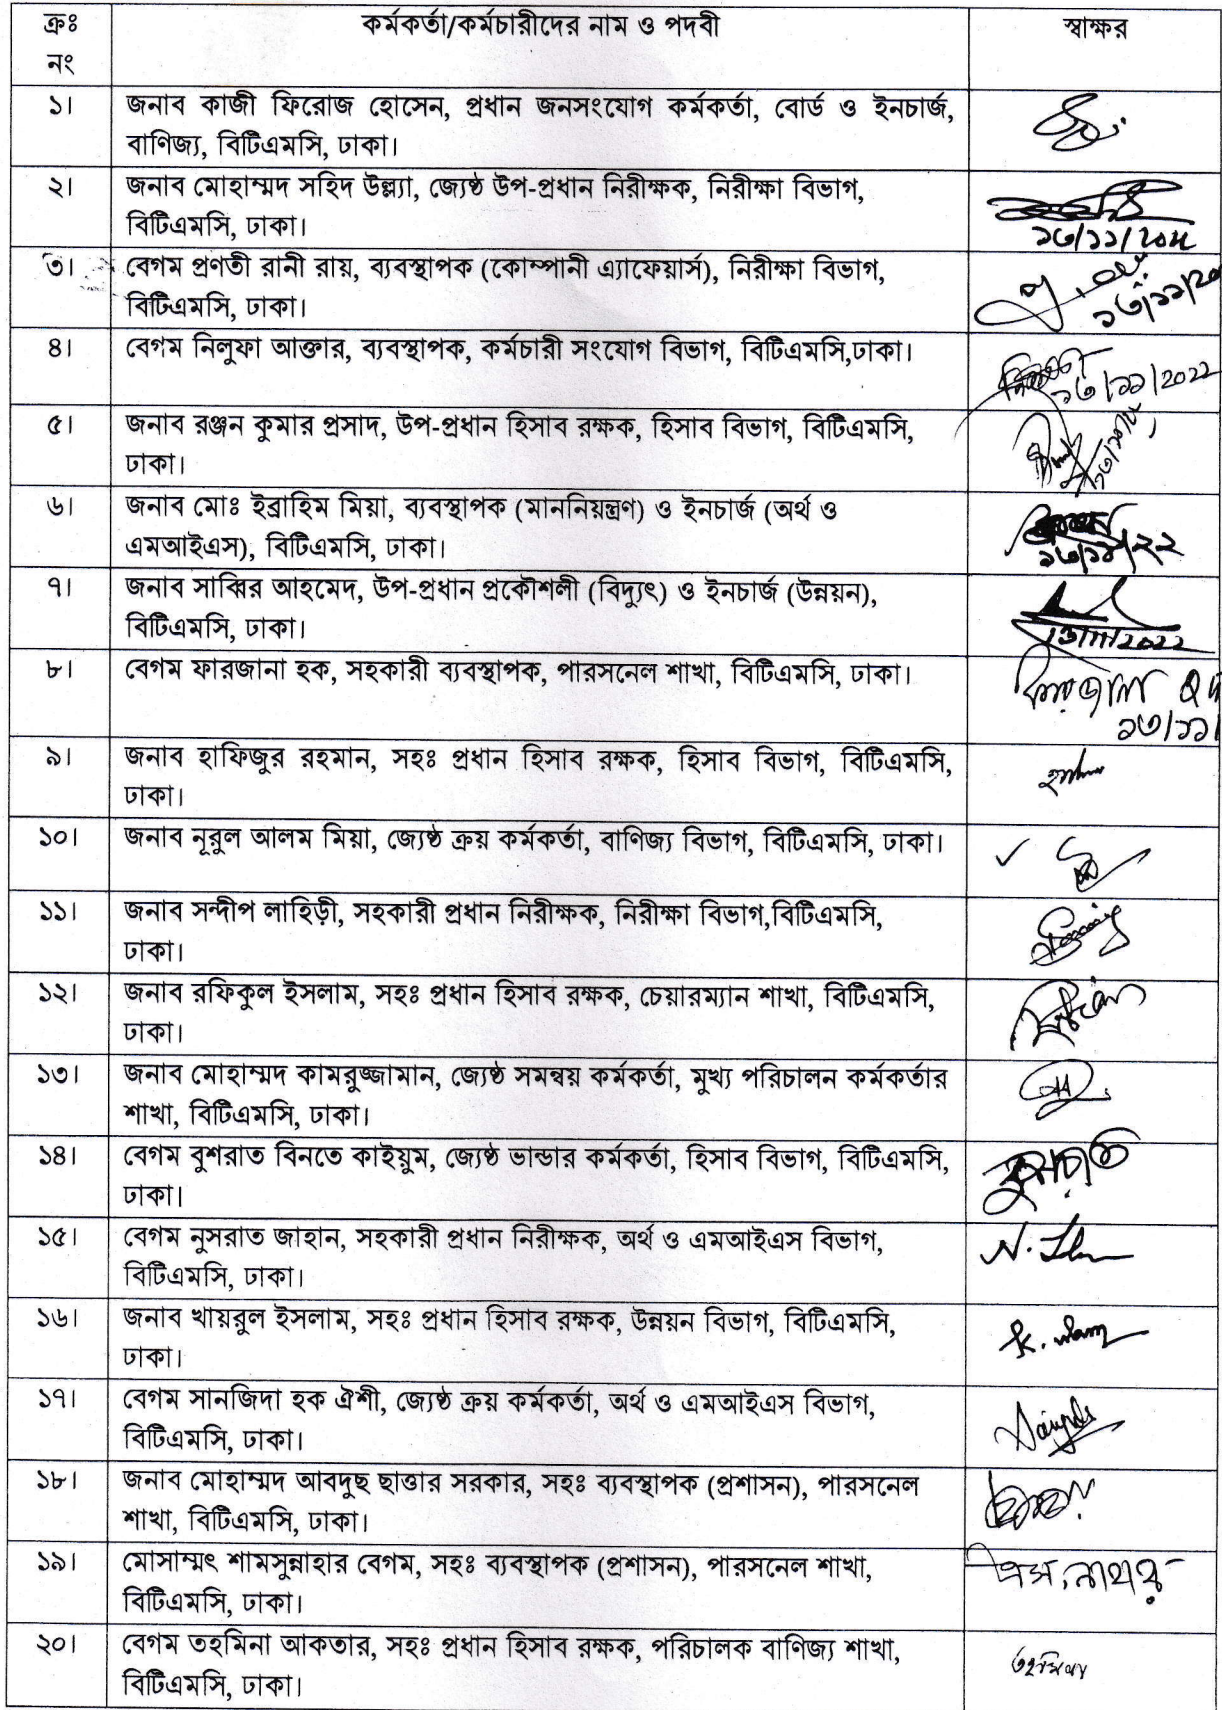 ক্রঃ কর্মকর্তা/কর্মচারীদের নাম ও পদবী স্বাক্ষর
নং
১। জনাব কাজী ফিরোজ হোসেন, প্রধান জনসংযোগ কর্মকর্তা, বোর্ড ও ইনচার্জ,
বাণিজ্য, বিটিএমসি, ঢাকা।
২। জনাব মোহাম্মদ সহিদ উল্ল্যা, জ্যেষ্ঠ উপ-প্রধান নিরীক্ষক, নিরীক্ষা বিভাগ,
বিটিএমসি, ঢাকা।
৩। বেগম প্রণতী রানী রায়, ব্যবস্থাপক (কোম্পানী এ্যাফেয়ার্স), নিরীক্ষা বিভাগ,
বিটিএমসি, ঢাকা।
৪। বেগম নিলুফা আক্তার, ব্যবস্থাপক, কর্মচারী সংযোগ বিভাগ, বিটিএমসি,ঢাকা।
১৩/১১/2022
৫। জনাব রঞ্জন কুমার প্রসাদ, উপ-প্রধান হিসাব রক্ষক, হিসাব বিভাগ, বিটিএমসি,
ঢাকা।
৬। জনাব মোঃ ইব্রাহিম মিয়া, ব্যবস্থাপক (মাননিয়ন্ত্রণ) ও ইনচার্জ (অর্থ ও
এমআইএস), বিটিএমসি, ঢাকা।
১৩/১১/২২
৭। জনাব সাব্বির আহমেদ, উপ-প্রধান প্রকৌশলী (বিদ্যুৎ) ও ইনচার্জ (উন্নয়ন),
বিটিএমসি, ঢাকা।
13/11/2022
৮। বেগম ফারজানা হক, সহকারী ব্যবস্থাপক, পারসনেল শাখা, বিটিএমসি, ঢাকা।
ফারজানা হক
১৩/১১/
৯। জনাব হাফিজুর রহমান, সহঃ প্রধান হিসাব রক্ষক, হিসাব বিভাগ, বিটিএমসি,
ঢাকা।
১০। জনাব নূরুল আলম মিয়া, জ্যেষ্ঠ ক্রয় কর্মকর্তা, বাণিজ্য বিভাগ, বিটিএমসি, ঢাকা।
১১। জনাব সন্দীপ লাহিড়ী, সহকারী প্রধান নিরীক্ষক, নিরীক্ষা বিভাগ,বিটিএমসি,
ঢাকা।
১২। জনাব রফিকুল ইসলাম, সহঃ প্রধান হিসাব রক্ষক, চেয়ারম্যান শাখা, বিটিএমসি,
ঢাকা।
১৩। জনাব মোহাম্মদ কামরুজ্জামান, জ্যেষ্ঠ সমন্বয় কর্মকর্তা, মুখ্য পরিচালন কর্মকর্তার
শাখা, বিটিএমসি, ঢাকা।
১৪। বেগম বুশরাত বিনতে কাইয়ুম, জ্যেষ্ঠ ভান্ডার কর্মকর্তা, হিসাব বিভাগ, বিটিএমসি,
ঢাকা।
১৫। বেগম নুসরাত জাহান, সহকারী প্রধান নিরীক্ষক, অর্থ ও এমআইএস বিভাগ,
বিটিএমসি, ঢাকা।
১৬। জনাব খায়রুল ইসলাম, সহঃ প্রধান হিসাব রক্ষক, উন্নয়ন বিভাগ, বিটিএমসি,
ঢাকা।
১৭। বেগম সানজিদা হক ঐশী, জ্যেষ্ঠ ক্রয় কর্মকর্তা, অর্থ ও এমআইএস বিভাগ,
বিটিএমসি, ঢাকা।
১৮। জনাব মোহাম্মদ আবদুছ ছাত্তার সরকার, সহঃ ব্যবস্থাপক (প্রশাসন), পারসনেল
শাখা, বিটিএমসি, ঢাকা।
১৯। মোসাম্মৎ শামসুন্নাহার বেগম, সহঃ ব্যবস্থাপক (প্রশাসন), পারসনেল শাখা,
এস, নাহার
বিটিএমসি, ঢাকা।
২০। বেগম তহমিনা আকতার, সহঃ প্রধান হিসাব রক্ষক, পরিচালক বাণিজ্য শাখা,
তহমিনা
বিটিএমসি, ঢাকা।